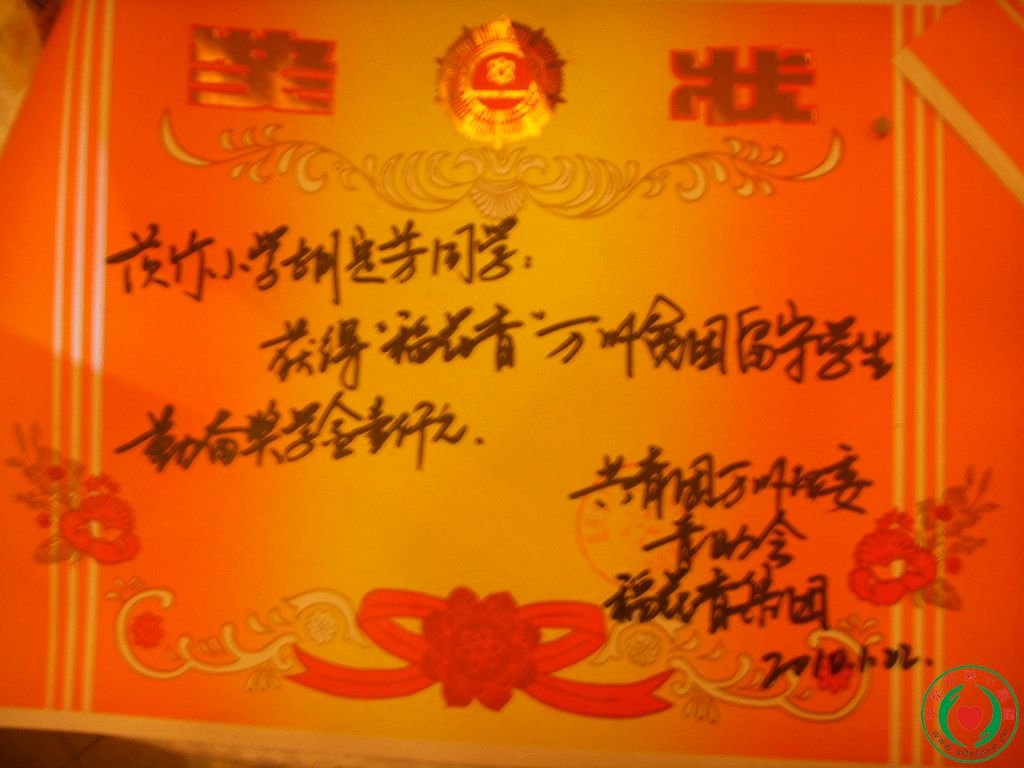 奖 状
茨竹小学胡建芳同学：
获得“稻花香”万州贫困留守学生
勤奋奖学金壹仟元.
共青团万州区委
青助会
稻花香集团
2010.1.22.